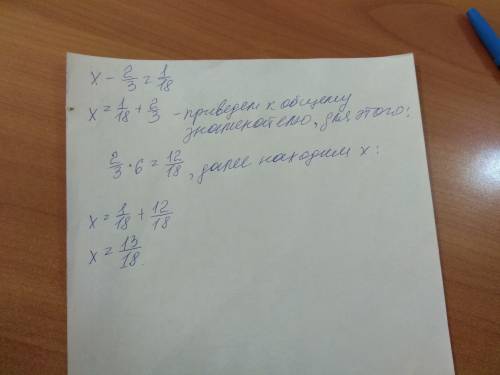 x - 2/3 = 1/18
x = 1/18 + 2/3 - приведем к общему
знаменателю, для этого:
2/3 · 6 = 12/18, далее находим x:
x = 1/18 + 12/18
x = 13/18